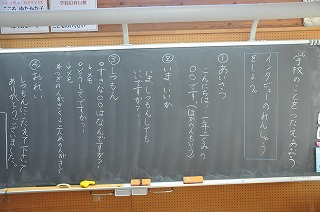 学校のことをつたえあおう
インタビューのれんしゅう
をしよう。
① あいさつ
こんにちは。一年二くみの
〇〇です。(ほかの人もいう)
② いま いいか
いま しつもんしても
いいですか？
③ しつもん
〇すきな〇〇はなんですか？
↓メモ
〇どうしてですか？
↓メモ
④ おれい
しつもんにこたえて下さって
ありがとうございました。